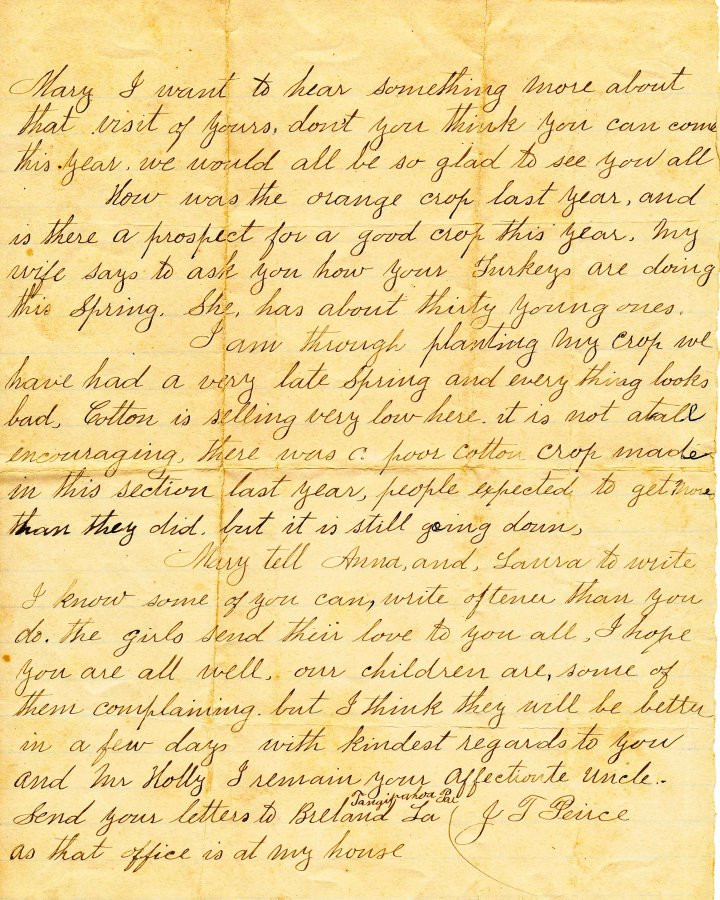 Mary I want to hear something more about
that visit of yours, don't you think you can come
this year. we would all be so glad to see you all
How was the orange crop last year, and
is there a prospect for a good crop this year. My
wife says to ask you how your Turkeys are doing
this Spring. She, has about thirty young ones.
I am through planting my crop we
have had a very late Spring and every thing looks
bad, Cotton is selling very low here. it is not atall
encouraging, there was a poor cotton crop made
in this section last year, people expected to get more
than they did. but it is still going down,
Mary tell Anna, and, Laura to write
I know some of you can, write oftener than you
do. the girls send their love to you all, I hope
you are all well, our children are, some of
them complaining. but I think they will be better
in a few days with kindest regards to you
and Mr Holly I remain your affectionte uncle..
Tangipahoa Par
Send your letters to Breland La ( J T Peirce
as that office is at my house